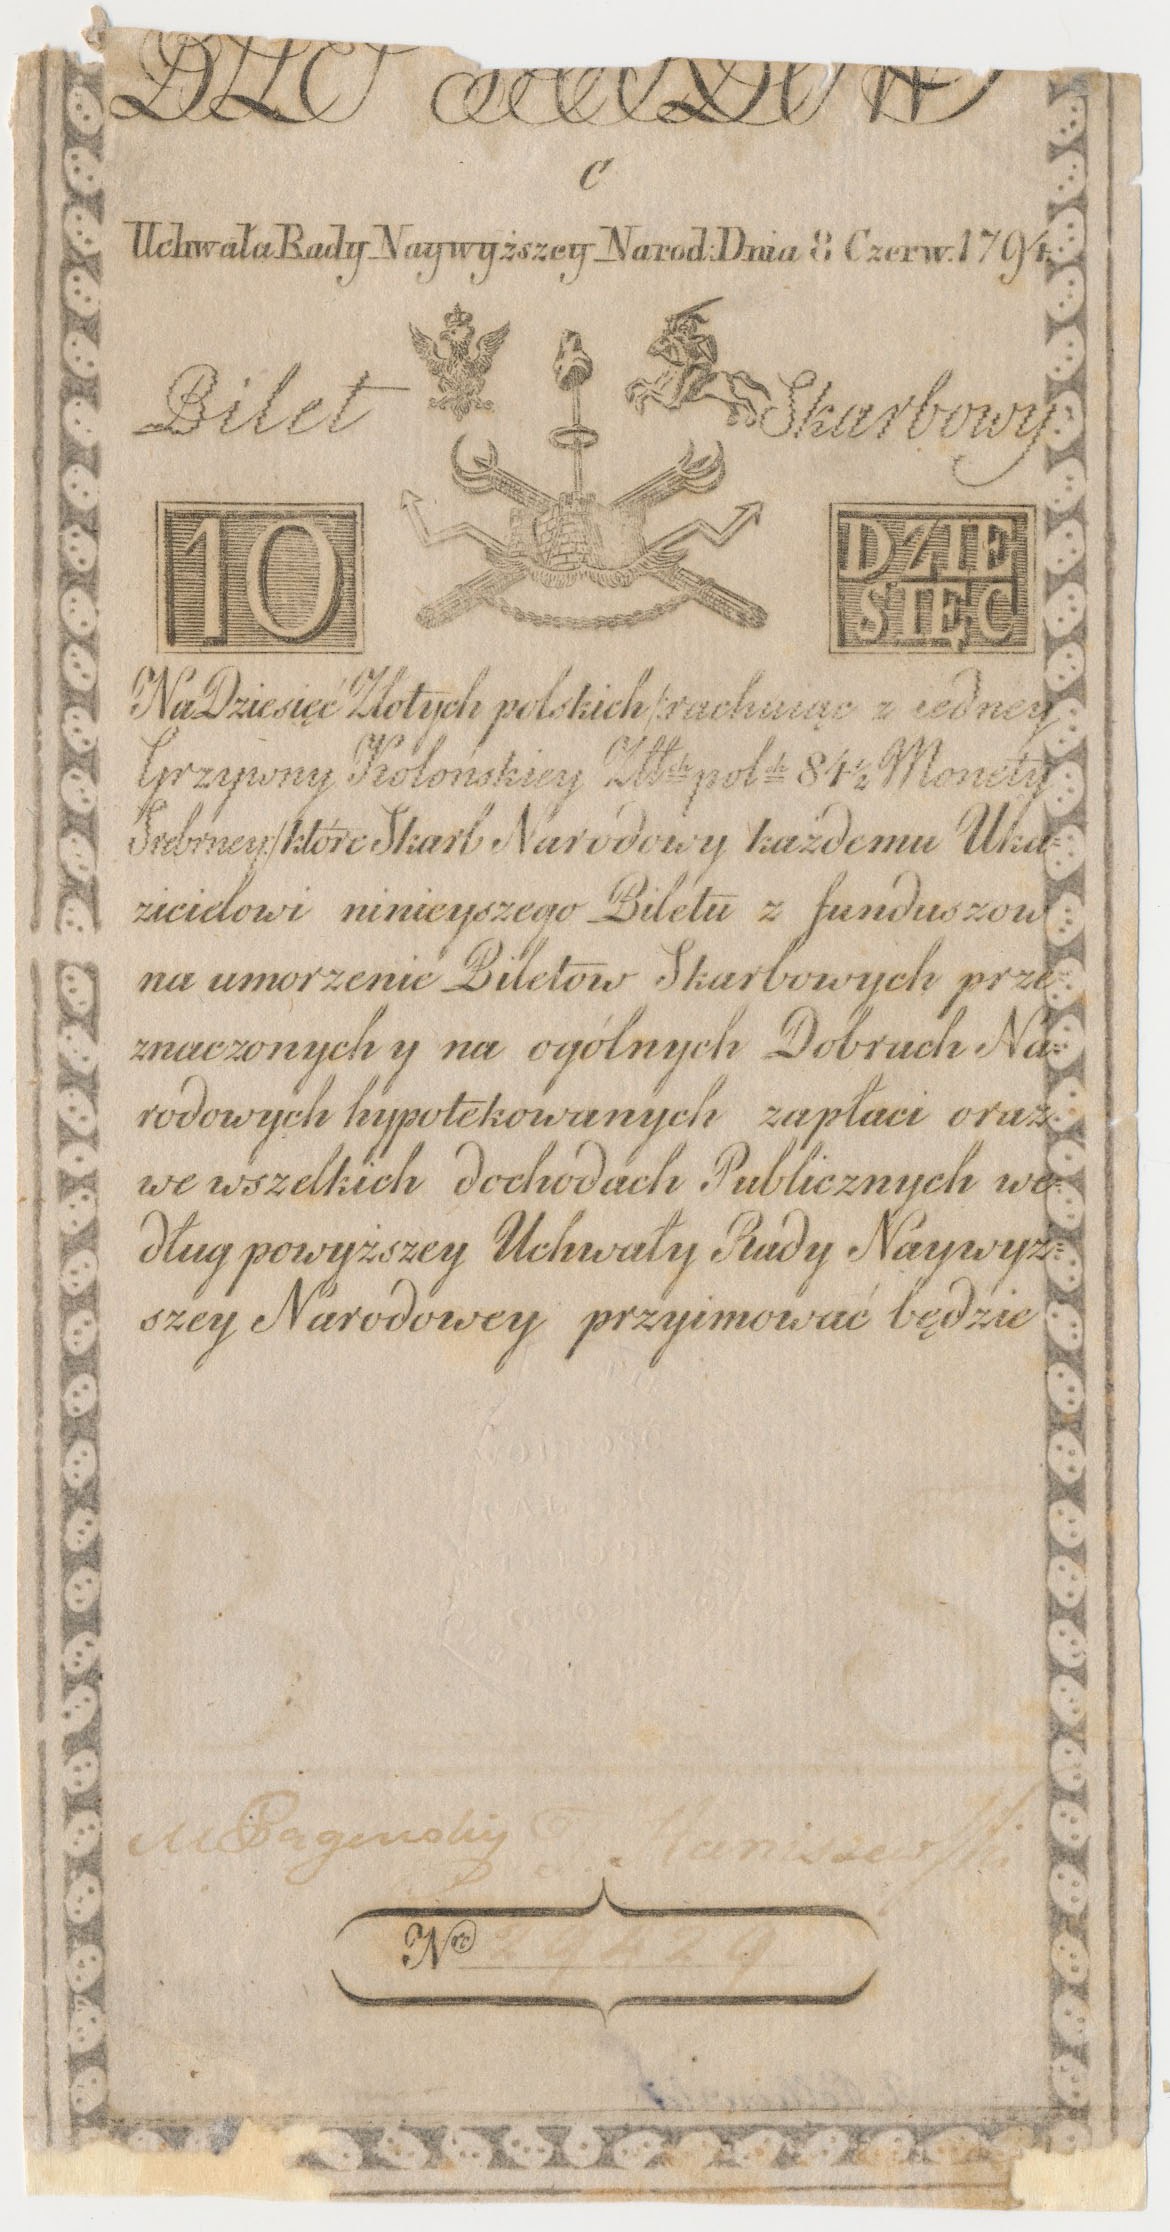 C
Uchwała Rady Naywyższey Narod: Dnia 8 Czerw. 1794.
Bilet Skarbowy
10
DZIE
SIĘĆ
Na Dziesięć Złotych polskich /:rachuiąc z iedney
Grzywny Kolońskiey Złł:ch pol:ch 84½ Monety
Srebrney:/ które Skarb Narodowy każdemu Uka=
zicielowi ninieyszego Biletu z funduszow
na umorzenie Biletow Skarbowych prze=
znaczonych y na ogólnych Dobrach Na=
rodowych hypotekowanych zapłaci oraz
we wszelkich dochodach Publicznych we=
dług powyższey Uchwały Rady Naywyż=
szey Narodowey przyimować będzie
Nro 29429